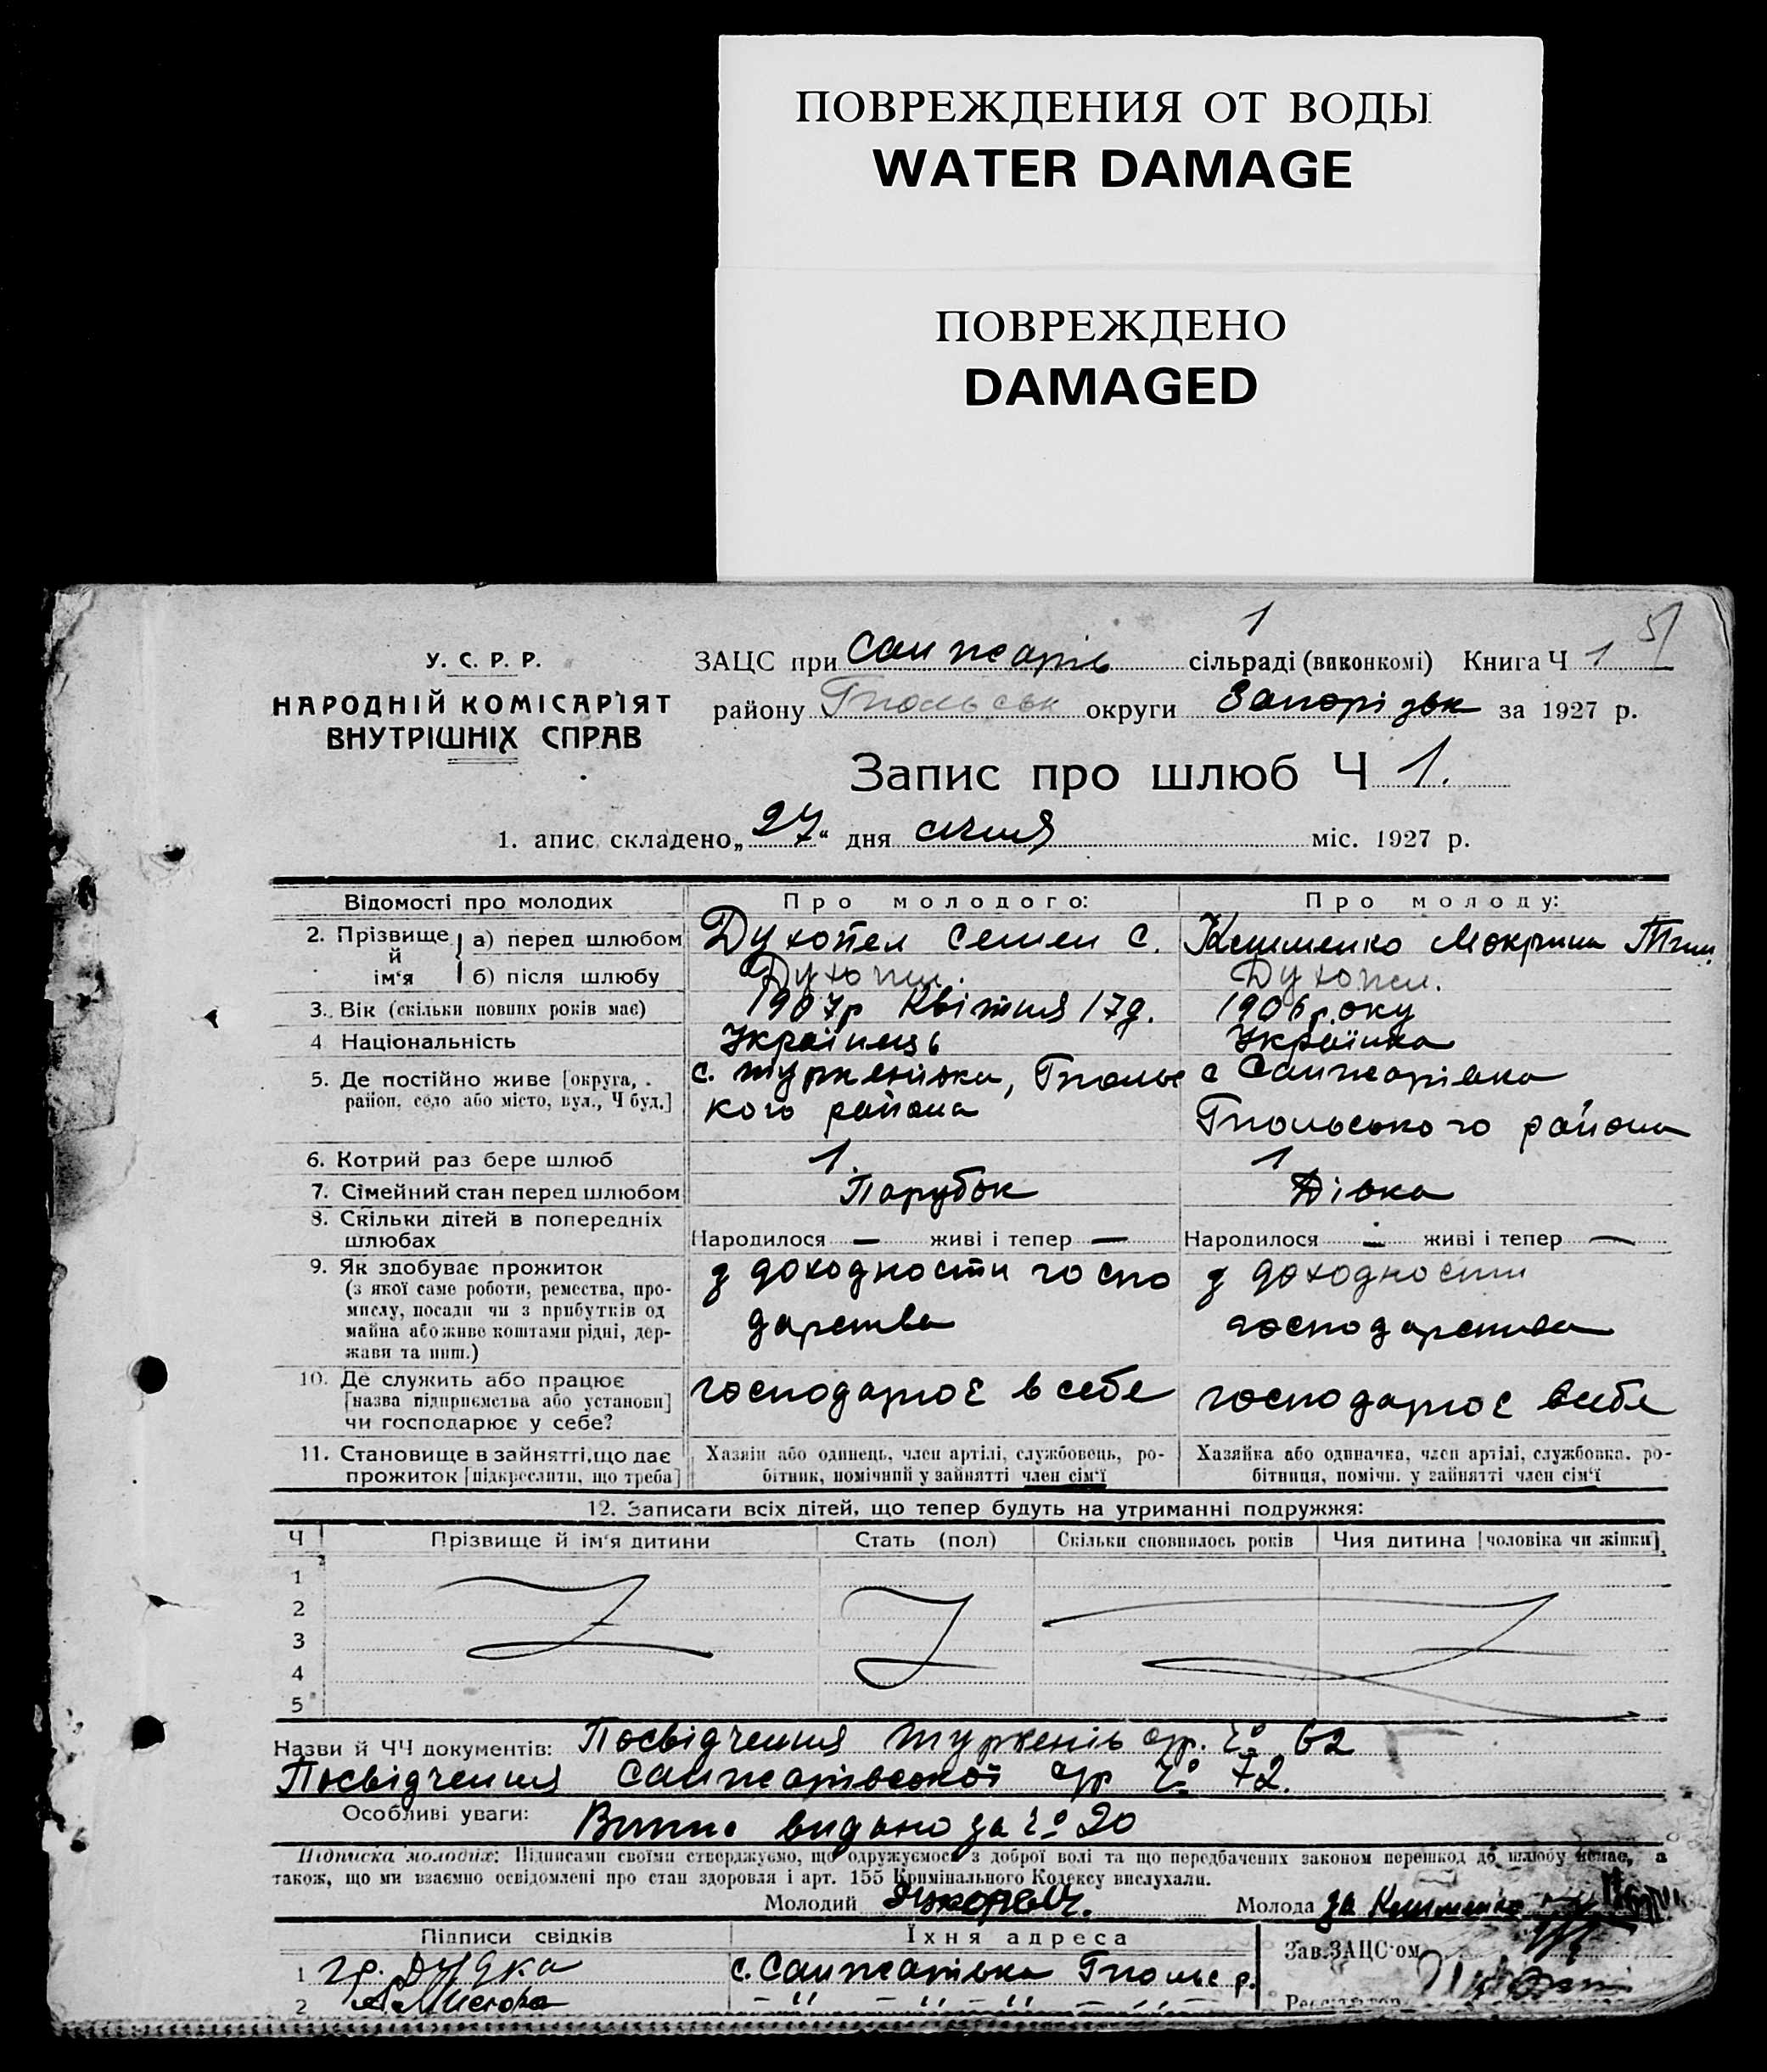 ПОВРЕЖДЕНИЯ ОТ ВОДЫ
WATER DAMAGE
ПОВРЕЖДЕНО
DAMAGED
1
51
У. С. Р. Р.
НАРОДНІЙ КОМІСАР'ІЯТ
ВНУТРІШНІХ СПРАВ
ЗАЦС при Санжарів сільраді (виконкомі) Книга Ч 1
району Гпольськ округи Запорізьк за 1927 р.
Запис про шлюб Ч 1.
1. апис складено „27“ дня січня міс. 1927 р.
Відомості про молодих Про молодого: Про молоду:
2. Прізвище й ім'я а) перед шлюбом Духопел Семен С. Клименко Мокрина Тим.
б) після шлюбу Духопел. Духопел.
3. Вік (скільки повних років має) 1907р Квітня 17д. 1906 року
4 Національність Українець Українка
5. Де постійно живе [округа, район, село або місто, вул., Ч буд.] с. Туркенівки, Гпольс
кого района
с Санжарівка
Гпольського района
6. Котрий раз бере шлюб 1. 1
7. Сімейний стан перед шлюбом Парубок Дівка
8. Скільки дітей в попередніх шлюбах Народилося — живі і тепер — Народилося — живі і тепер —
9. Як здобуває прожиток
(з якої саме роботи, ремества, про-
мислу, посади чи з прибутків од
майна або живе коштами рідні, дер-
жави та инш.)
з доходности госпо
дарства
з доходности
господарства
10. Де служить або працює
[назва підприємства або установи]
чи господарює у себе?
господарює в себе господарює в себе
11. Становище в зайнятті, що дає
прожиток [підкреслити, що треба]
Хазяїн або одинець, член артілі, службовець, ро-
бітник, помічний у зайнятті член сім'ї
Хазяйка або одиначка, член артілі, службовка, ро-
бітниця, помічн. у зайнятті член сім'ї
12. Записати всіх дітей, що тепер будуть на утриманні подружжя:
Ч Прізвище й ім'я дитини Стать (пол) Скільки сповнилось років Чия дитина [чоловіка чи жінки]
1
2
3
4
5
Назви й ЧЧ документів: Посвідчення Туркенів с/р. Ч° 62
Посвідчення Санжарівської с/р Ч° 72.
Особливі уваги: видано за Ч° 20
Підписка молодих: Підписами своїми стверджуємо, що одружуємося з доброї волі та що передбачених законом перешкод до шлюбу немає, а
також, що ми взаємно освідомлені про стан здоровля і арт. 155 Кримінального Кодексу вислухали.
Молодий Молода за Клименко
Підписи свідків Їхня адреса Зав. ЗАЦС'ом
1 гр. Дудка с. Санжарівка Гпольс р.
2 – " – " – " – " – "
Реєстратор